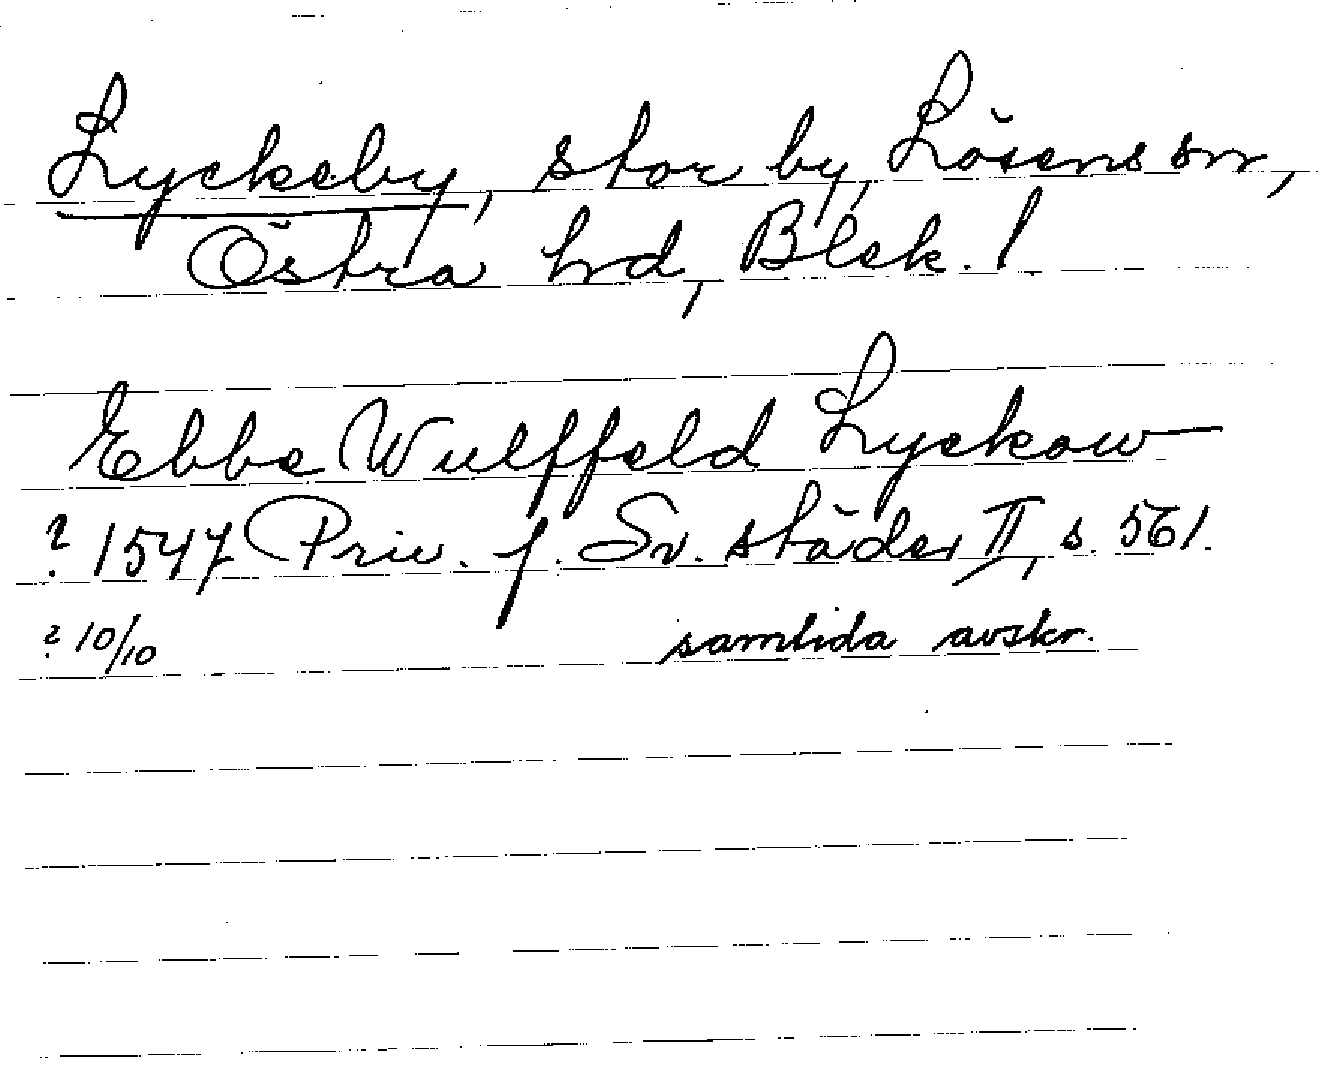 Lyckeby, stor by, Lösens sn,
Östra hd, Blek. l
Ebbe Wulffeld Lyckow
? 1547 Priv. f. Sv. städer II, s. 561.
? 10/10 samtida avskr.